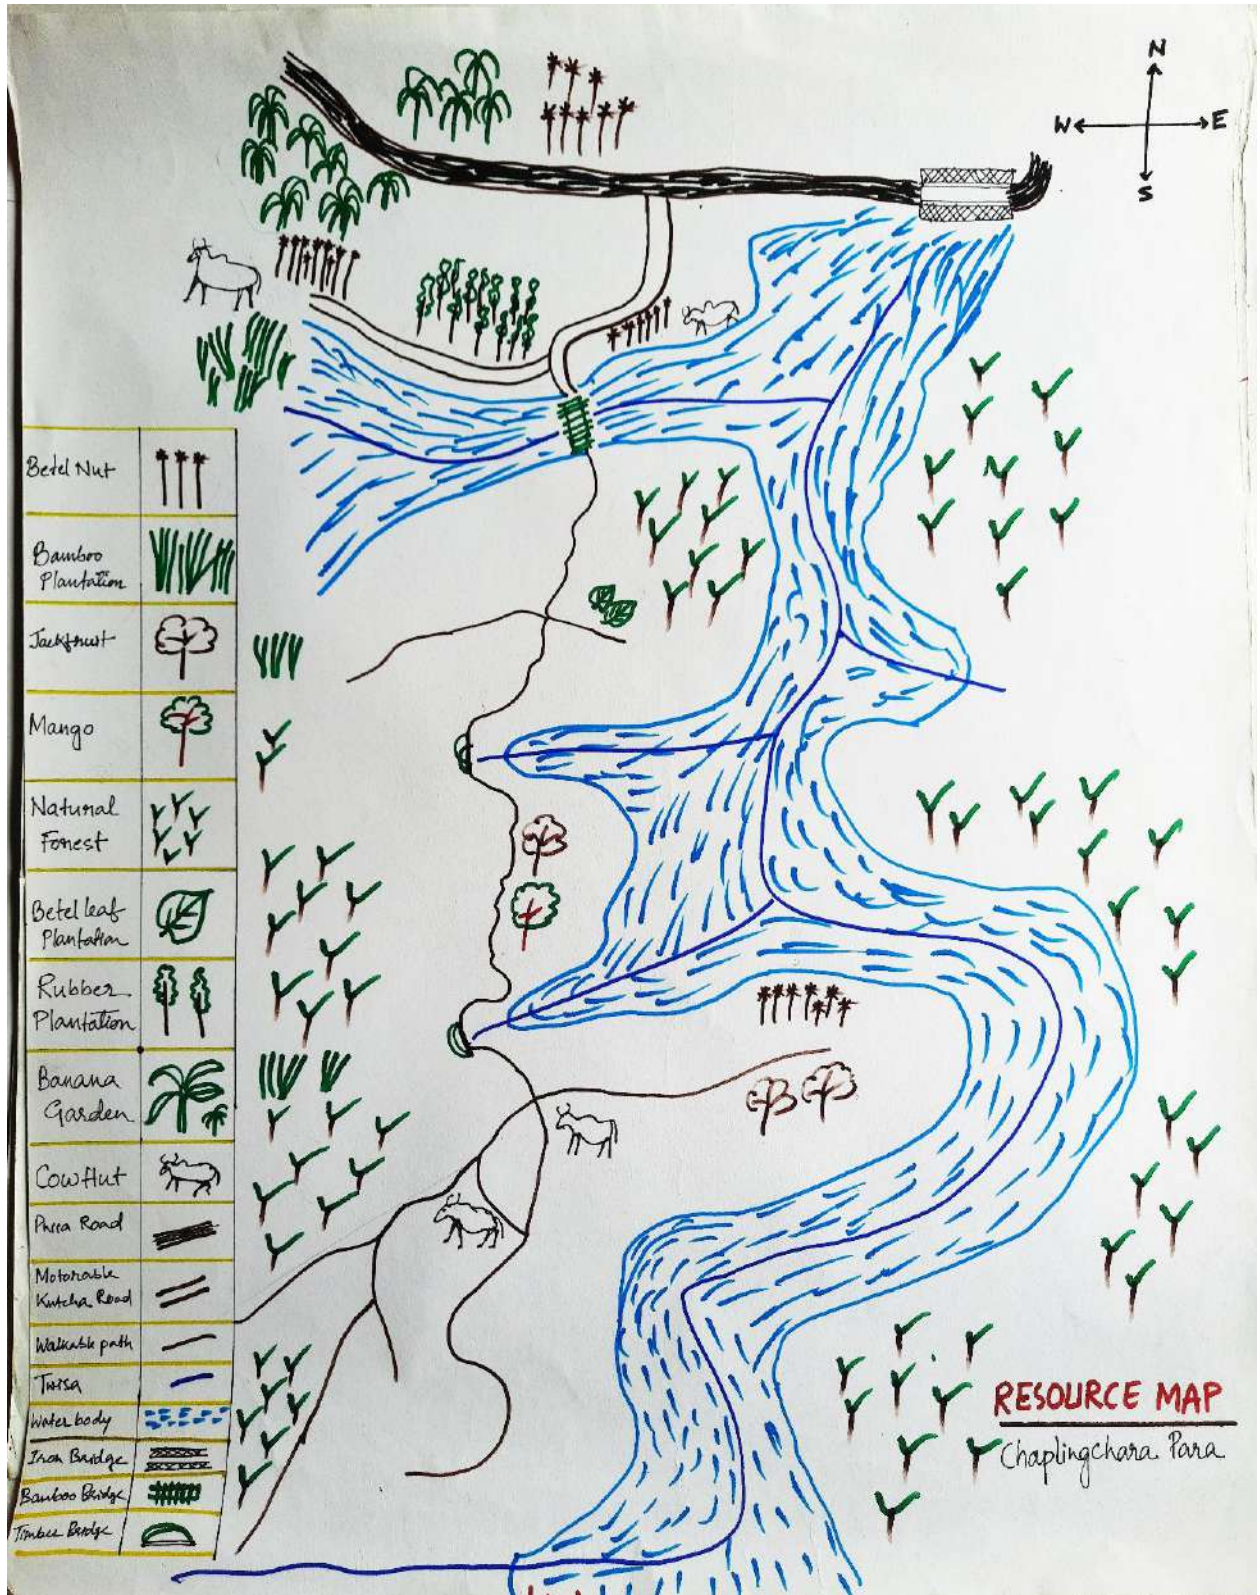 N
W E
S
Betel Nut
Bamboo
Plantation
Jackfruit
Mango
Natural
Forest
Betel leaf
Plantation
Rubber
Plantation
Banana
Garden
Cow Hut
Pucca Road
Motorable
Kutcha Road
Walkable path
Twisa
Water body
Iron Bridge
Bamboo Bridge
Timber Bridge
RESOURCE MAP
Chaplingchara Para